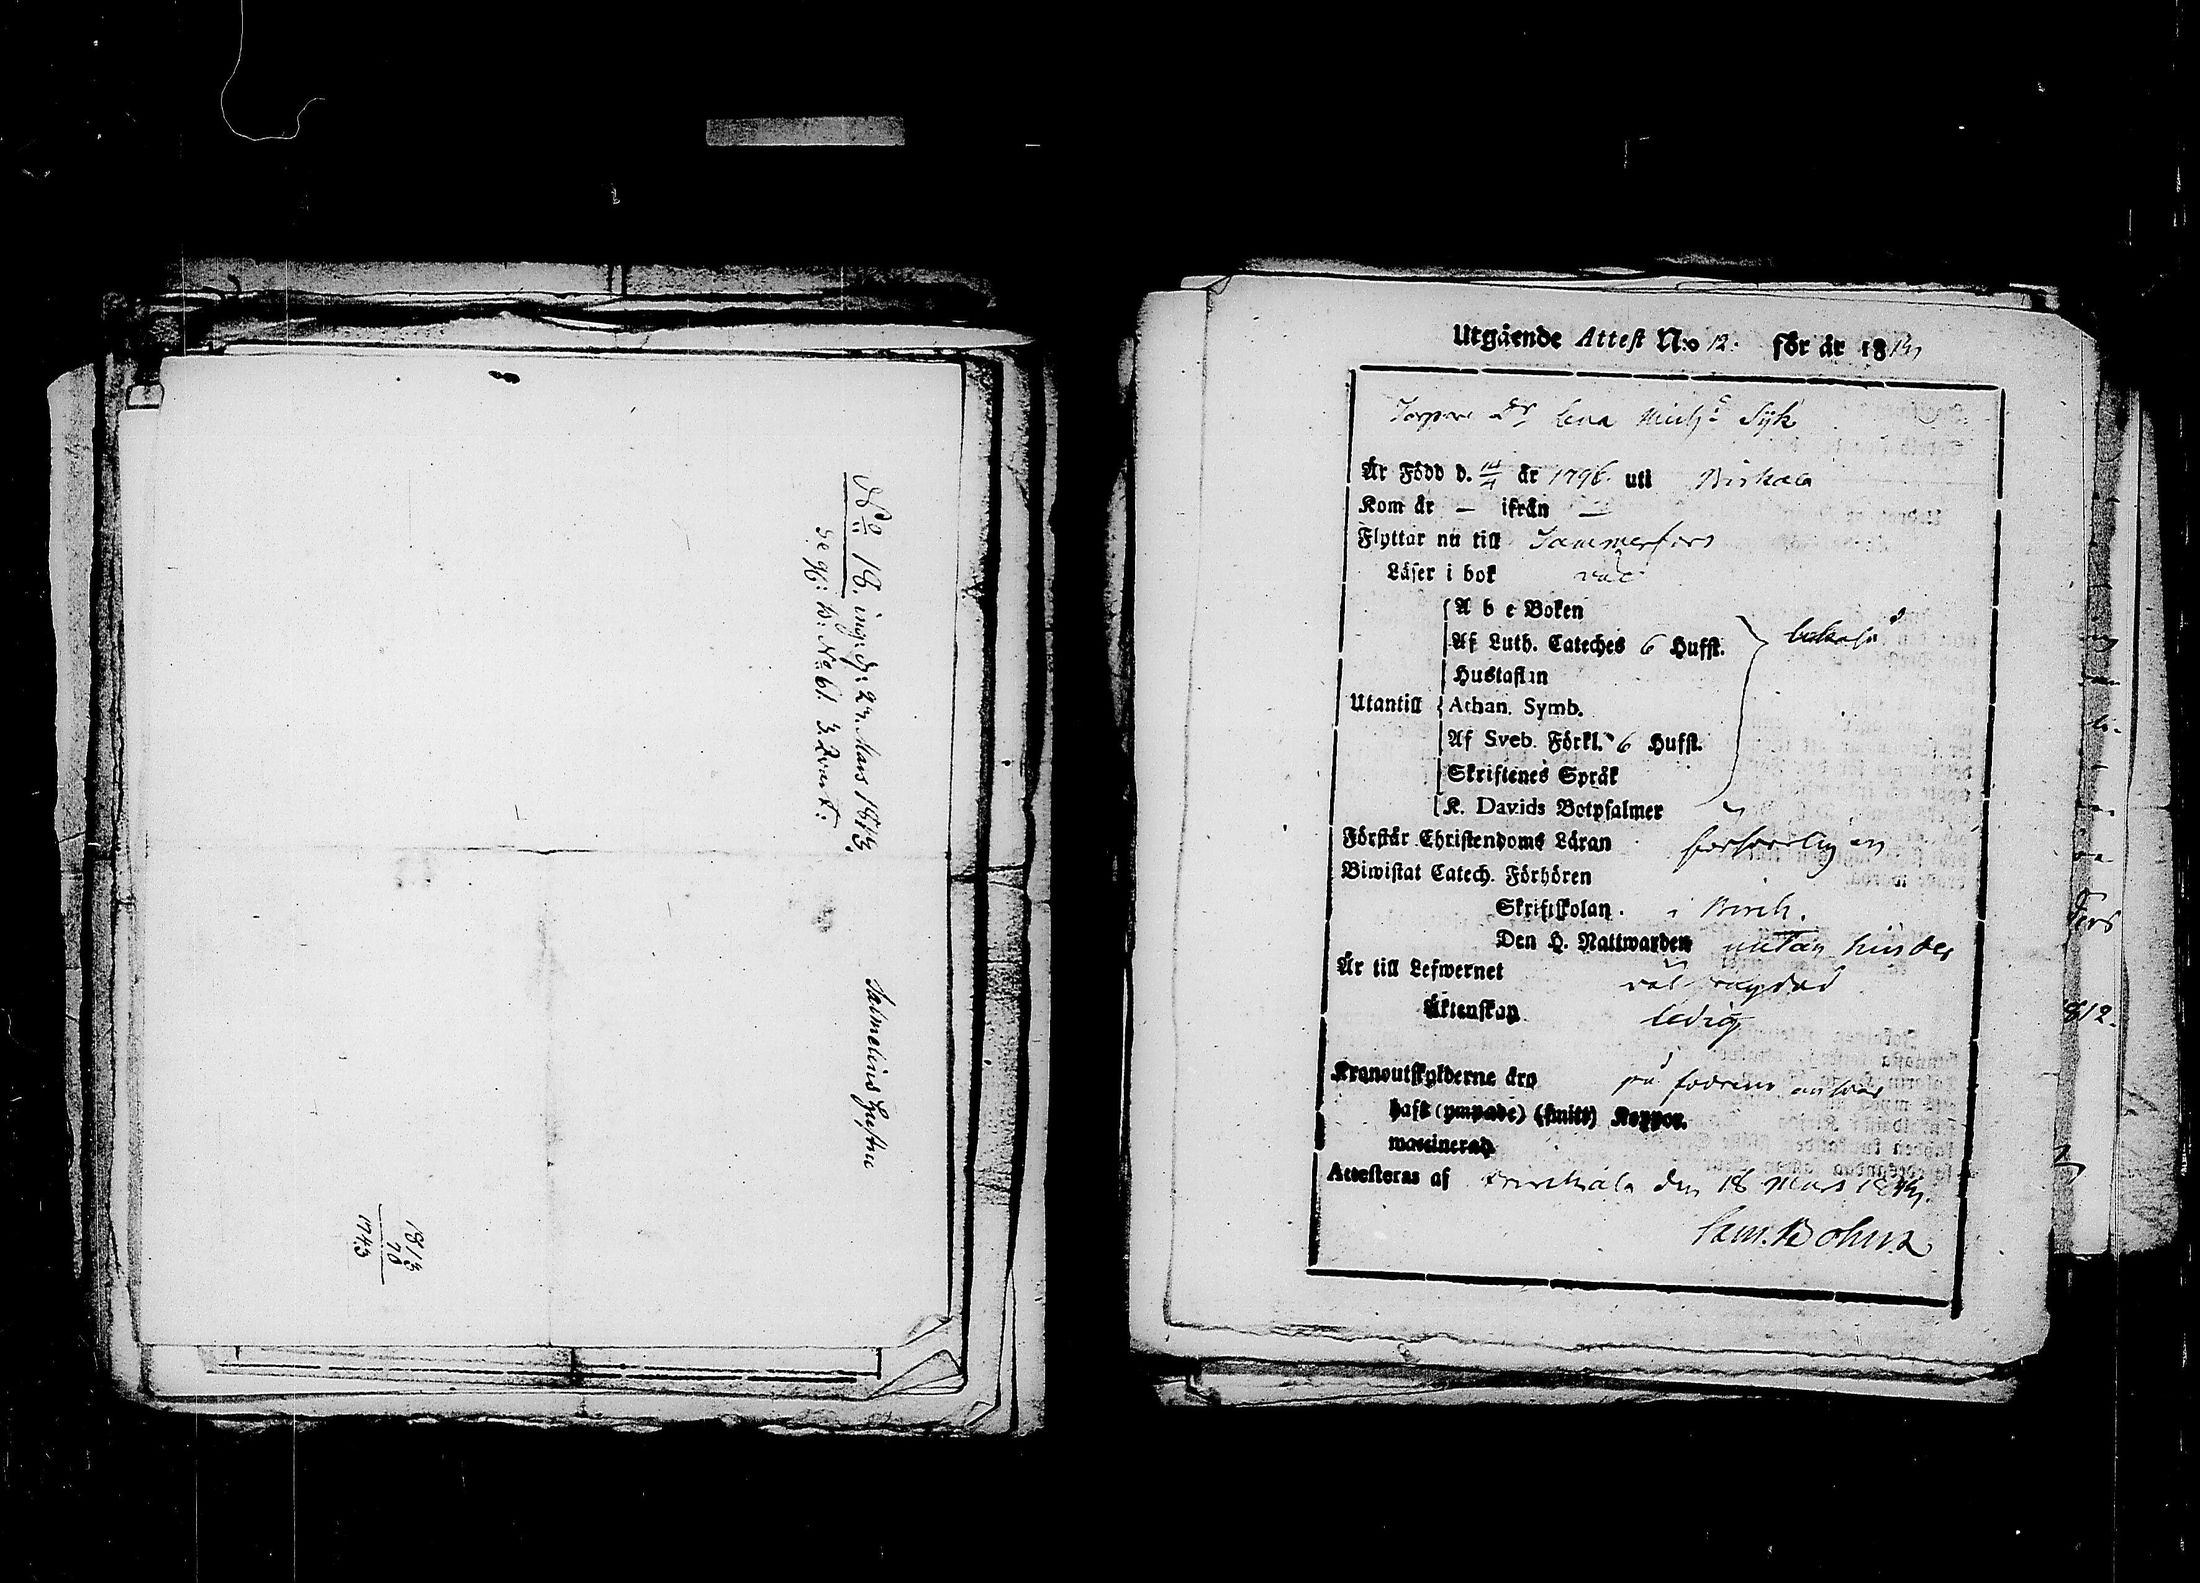 No 18. ing: d: 27. Mars 1813.
se h: b: No 61. 3. Qvart:
Salmelius Gustav
1813
70
1743
Utgående Attest N:o 12. för år 1813
Torpare dr Lena Michs Sÿk
Är Född d. 14/4 år 1796. uti Birkala
Kom år — ifrån —
Flyttar nu till Tammerfors
Läser i bok väl
A b c Boken
Af Luth. Cateches 6 Hufst.
Hustaflan
Utantill Athan. Symb.
Af Sveb. Förkl. 6 Hufst.
Skriftenes Språk
K. Davids Botpsalmer
Förstår Christendoms Läran försvarligen
Biwistat Catech. Förhören
Skriftskolan i Birck.
Den H. Nattwarden uutan hinder
Är till Lefwernet väl frägdad
Äktenskap ledig
Kronoutskylderne äro på fodrens answar
haft (ympade) (smitt) Koppor.
waccinerad
Attesteras af Birckala den 18 Mars 1813.
Sam. Bohm
1812.